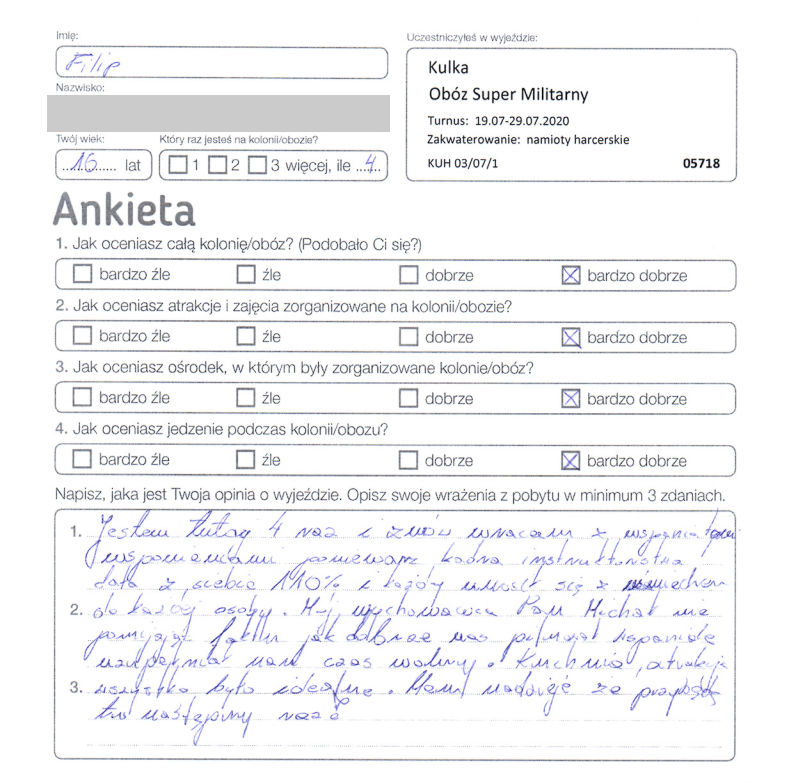 Imię:
Filip
Nazwisko:
Twój wiek:
16 lat
Który raz jesteś na kolonii/obozie?
1 2 3 więcej, ile 4
Uczestniczyłeś w wyjeździe:
Kulka
Obóz Super Militarny
Turnus: 19.07-29.07.2020
Zakwaterowanie: namioty harcerskie
KUH 03/07/1 05718
Ankieta
1. Jak oceniasz całą kolonię/obóz? (Podobało Ci się?)
bardzo źle źle dobrze bardzo dobrze
2. Jak oceniasz atrakcje i zajęcia zorganizowane na kolonii/obozie?
bardzo źle źle dobrze bardzo dobrze
3. Jak oceniasz ośrodek, w którym były zorganizowane kolonie/obóz?
bardzo źle źle dobrze bardzo dobrze
4. Jak oceniasz jedzenie podczas kolonii/obozu?
bardzo źle źle dobrze bardzo dobrze
Napisz, jaka jest Twoja opinia o wyjeździe. Opisz swoje wrażenia z pobytu w minimum 3 zdaniach.
1. Jestem tutaj 4 raz i znów wracam z wspaniałymi
wspomnieniami ponieważ kadra instruktorska
dała z siebie 110% i każdy
2. do każdej osoby. Mój wychowawca Pan Michał nie
pomijając faktu jak dobrze nas pilnował wspaniale
nam czas wolny. Kuchnia, atrakcje
3. wszystko było idealne. Mam nadzieję że przyjadę
tu następny raz